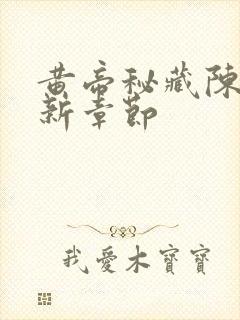 黄帝秘藏陳
新章節
我愛木寶寶